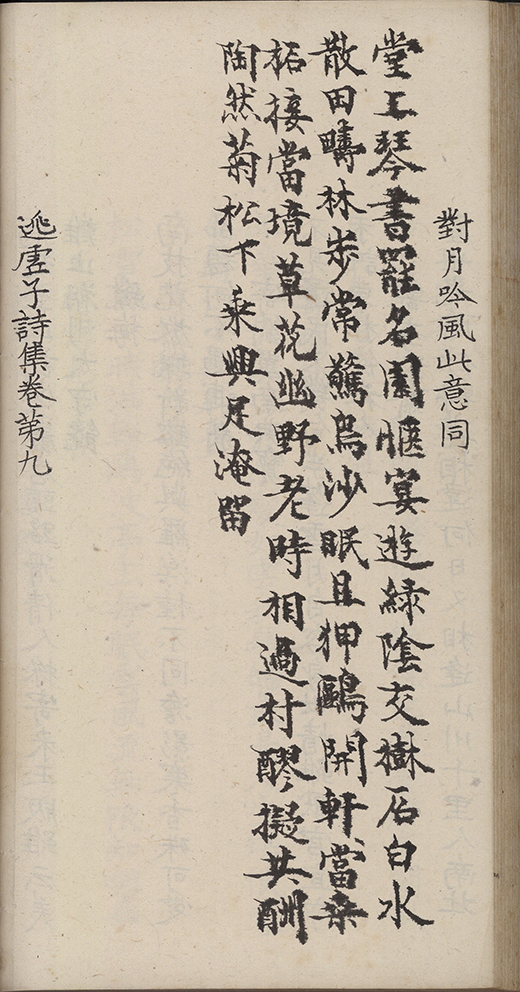 對月吟風此意同
堂上琴書罷名園愜宴遊綠陰交樹石白水
散田疇林步常驚鳥沙眠且狎鷗開軒當桑
柘接當境草花幽野老時相過村醪擬共酬
陶然菊松下乘興足淹留
逃虛子詩集卷第九